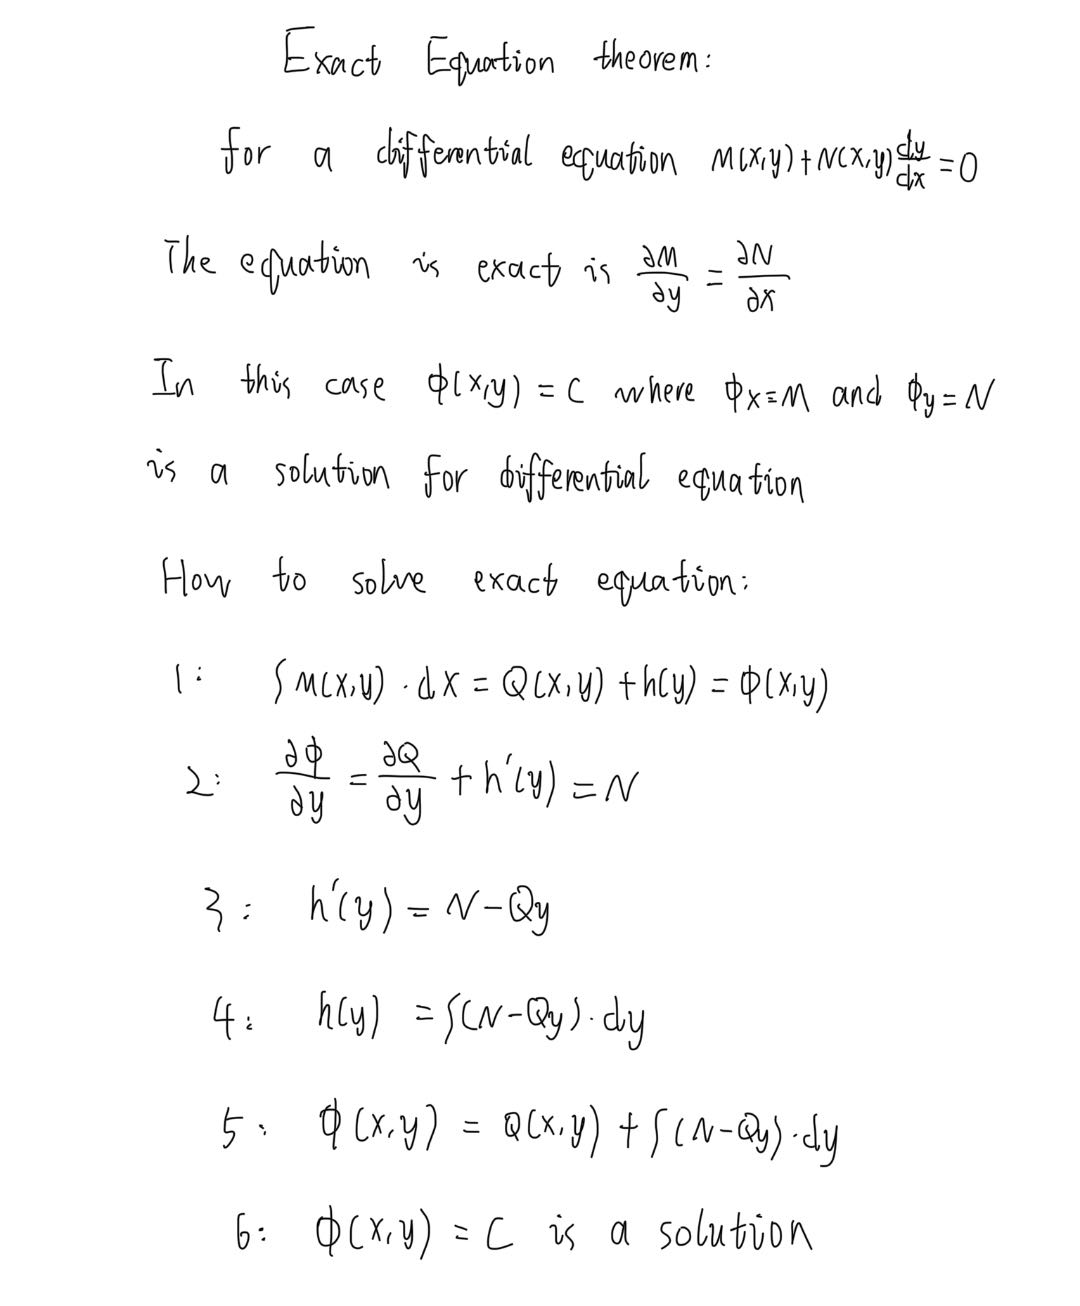 Exact Equation theorem:
for a differential equation M(x,y)+N(x,y)dy/dx=0
The equation is exact is ∂M/∂y = ∂N/∂x
In this case ϕ(x,y) = C where ϕx=M and ϕy=N
is a solution for differential equation
How to solve exact equation:
1: ∫M(x,y)·dx = Q(x,y)+h(y) = ϕ(x,y)
2: ∂ϕ/∂y = ∂Q/∂y + h'(y) = N
3: h'(y) = N-Qy
4: h(y) = ∫(N-Qy)·dy
5: ϕ(x,y) = Q(x,y) + ∫(N-Qy)·dy
6: ϕ(x,y) = C is a solution